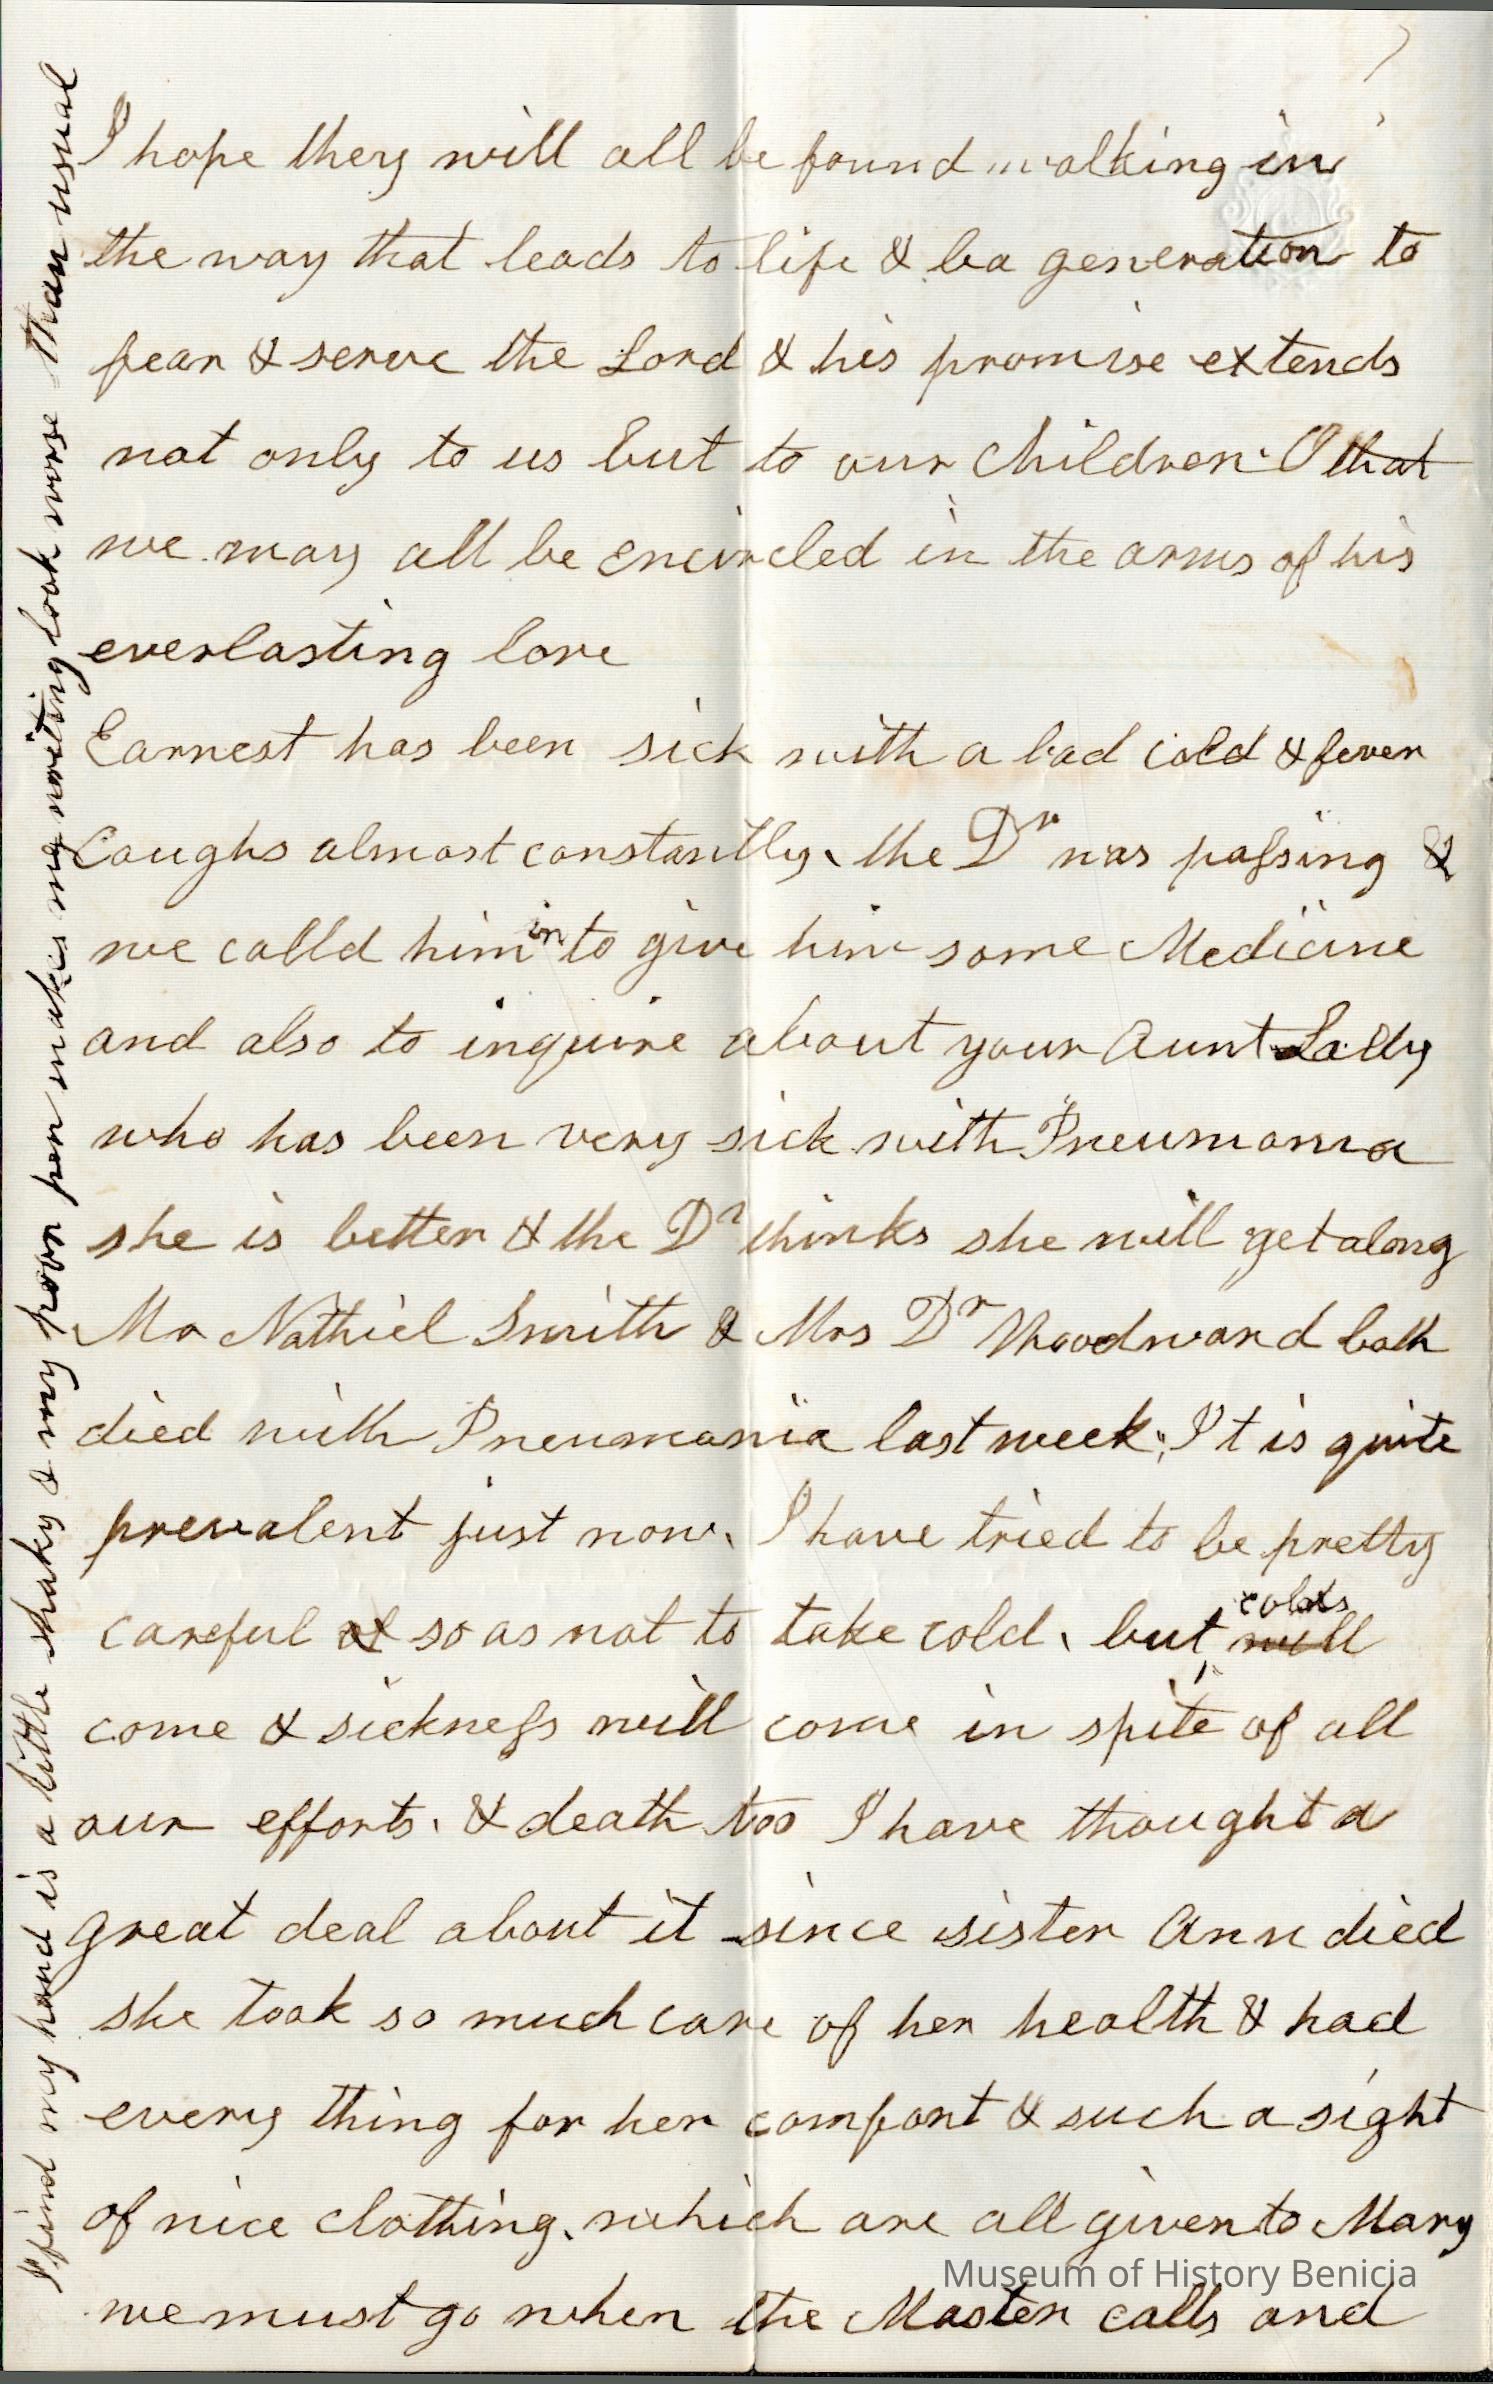 I hope they will all be found walking in
the way that leads to life & be a generation to
fear & serve the Lord & his promise extends
not only to us but to our children. O that
we may all be encircled in the arms of his
everlasting love
Earnest has been sick with a bad cold & fever
Coughs almost constantly, the Dr was passing &
we calld him in to give him some Medicine
and also to inquire about your Aunt
who has been very sick with Pneumonia
she is better & the Dr thinks she will get along
Mr Nathiel Smith & Mrs Dr Woodward both
died with Pneumonia last week, It is quite
prevalent just now, I have tried to be pretty
careful & so as not to take cold, but colds will
come & sickness will come in spite of all
our efforts, & death too I have thought a
great deal about it since sister Ann died
she took so much care of her health & had
every thing for her comfort & such a sight
of nice clothing, which are all given to Mary
we must go when the Master calls and
I find my hand is a little shaky & my poor pen makes my writing look worse than usual
Museum of History Benicia